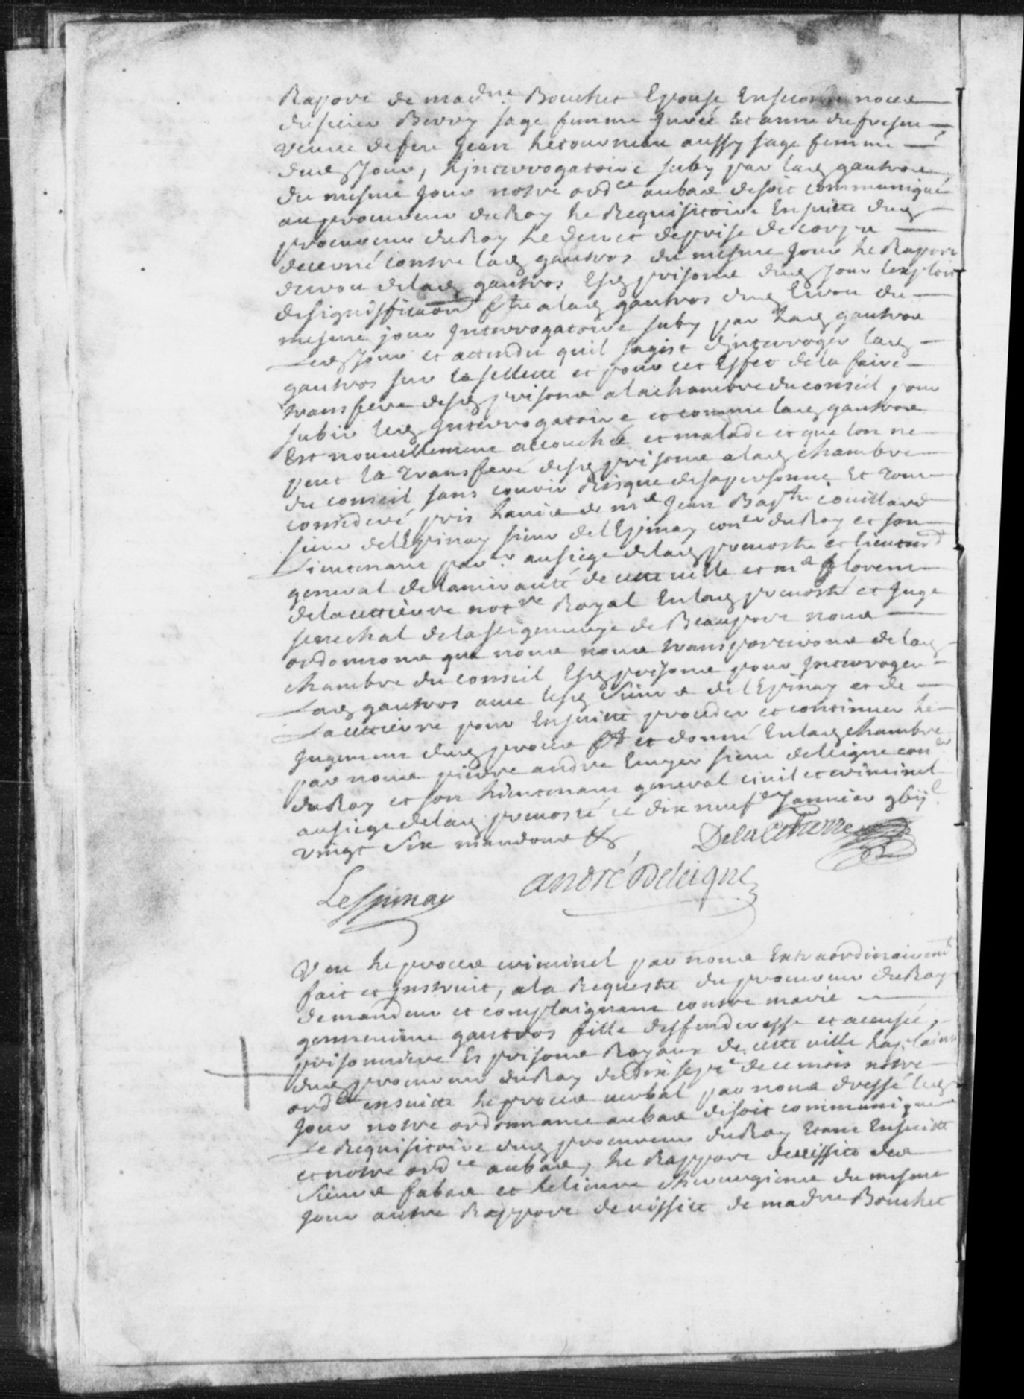 Raport de mad.ne Bouchet Epouse En seconde noces
du sieur Berry sage femme jurée Et anne dufresne
veuve de feu Jean Letourneau aussy sage femme
dud. Jour, L'interrogatoire suby par lad. gautron
du mesme Jour notre ord.ce aubas de soit communiqué
au procureur du Roy Le Requisitoire En suitte dud.
procureur du Roy Le decret de prise de corps
decerné contre lad. gautros du mesme Jour Le Raport
decrou de lad. gautros Esd. prisons dud. Jour lexploit
de signiffication a lad. gautros dud. Ecrou du
mesme jour Interrogatoire suby par Lad. gautron
Led. Jour et attendu quil sagist d'interroger lad.
gautros sur la sellette et pour cet Effet de la faire
transferer desd. prisons a la chambre du conseil pour
subir led. Interrogatoire et comme lad. gautron
Est nouvellement accouchée et malade et que lon ne
peut la transferer desd. prisons a lad. chambre
du conseil sans courir Risque de sa personne Et tout
consideré pris Lavis de m.e Jean Bap.te Couillard
sieur de lEpinay con.er du Roy et son
Lieutenant par.er au siege de lad. prevosté et lieutenant
general de lamirauté de cette ville et m.e florent
de la cettière not.re Royal En lad. prevosté et Juge
senechal de la seigneurye de Beauport nous
ordonnons que nous nous transporterons de lad.
chambre du conseil Esd. prisons pour Interroger
Lad. gautros avec lesd. Sieurs de lEpinay et de
La cettière pour Ensuitte proceder et continuer Le
Jugement dud. procès et donné En lad. chambre
par nous pierre andré Ecuyer sieur deleigne con.er
du Roy et son Lieutenant general civil et criminel
au siege de lad. prevosté ce dix neuf Janvier gbij.c
vingt Six mandons &c
Delacetierre
Lespinay
andré Deleigne
Veu Le procès criminel par nous Extraordinairement
fait et Instruit, a la Requeste du procureur du Roy
demandeur et complaignant contre marie
genevieve gautros fille deffenderesse et accusée,
prisonniere Es prisons Royaux de cette ville La plainte
dud. procureur du Roy du dix sept de ce mois notre
ord.ce ensuitte Le procès verbal par nous dressé led.
Jour notre ordonnance aubas de soit communiqué
Le Requisitoire dud. procureur du Roy Etant Ensuitte
et notre ord.ce aubas, Le Rapport de vissite des
Sieurs fabas et chirurgiens du mesme
Jour autre Rapport de vissite de mad.ne Bouchet